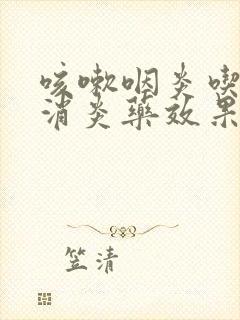 咳嗽咽炎喫
消炎藥效果
笠清